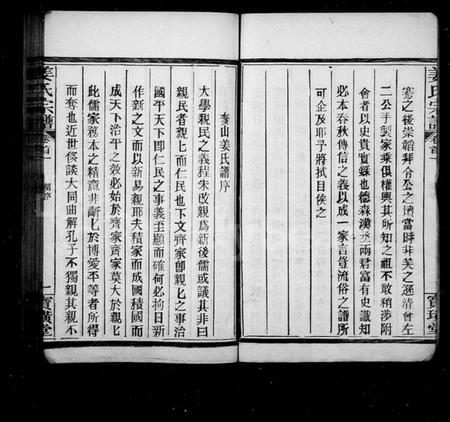 姜氏宗譜
卷首
蹇之後崇韜拜令公之墳當時非笑之逐清曾左
二公手製家乘俱權輿其所知之祖不敢稍涉附
會者以史貴實錄也德森漢丞兩君富有史識知
必本春秋傳信之義以成一家言豈流俗之譜所
可企及耶予將拭目俟之
寶璜堂
泰山姜氏譜序
大學親民之義程朱改親爲新後儒或議其非曰
親民者親匕而仁民也下文齊家卽親匕之事治
國平天下卽仁民之事義主顯而確何必拘日新
作新之文而以新易親耶夫積家而成國積國而
成天下治平之效必始於齊家齊家莫大於親匕
此儒家務本之精意非辭匕於博愛平等者所得
而奪也近世侈談大同曲解孔子不獨親其親不
姜氏宗譜
卷首
序
一
寶璜堂